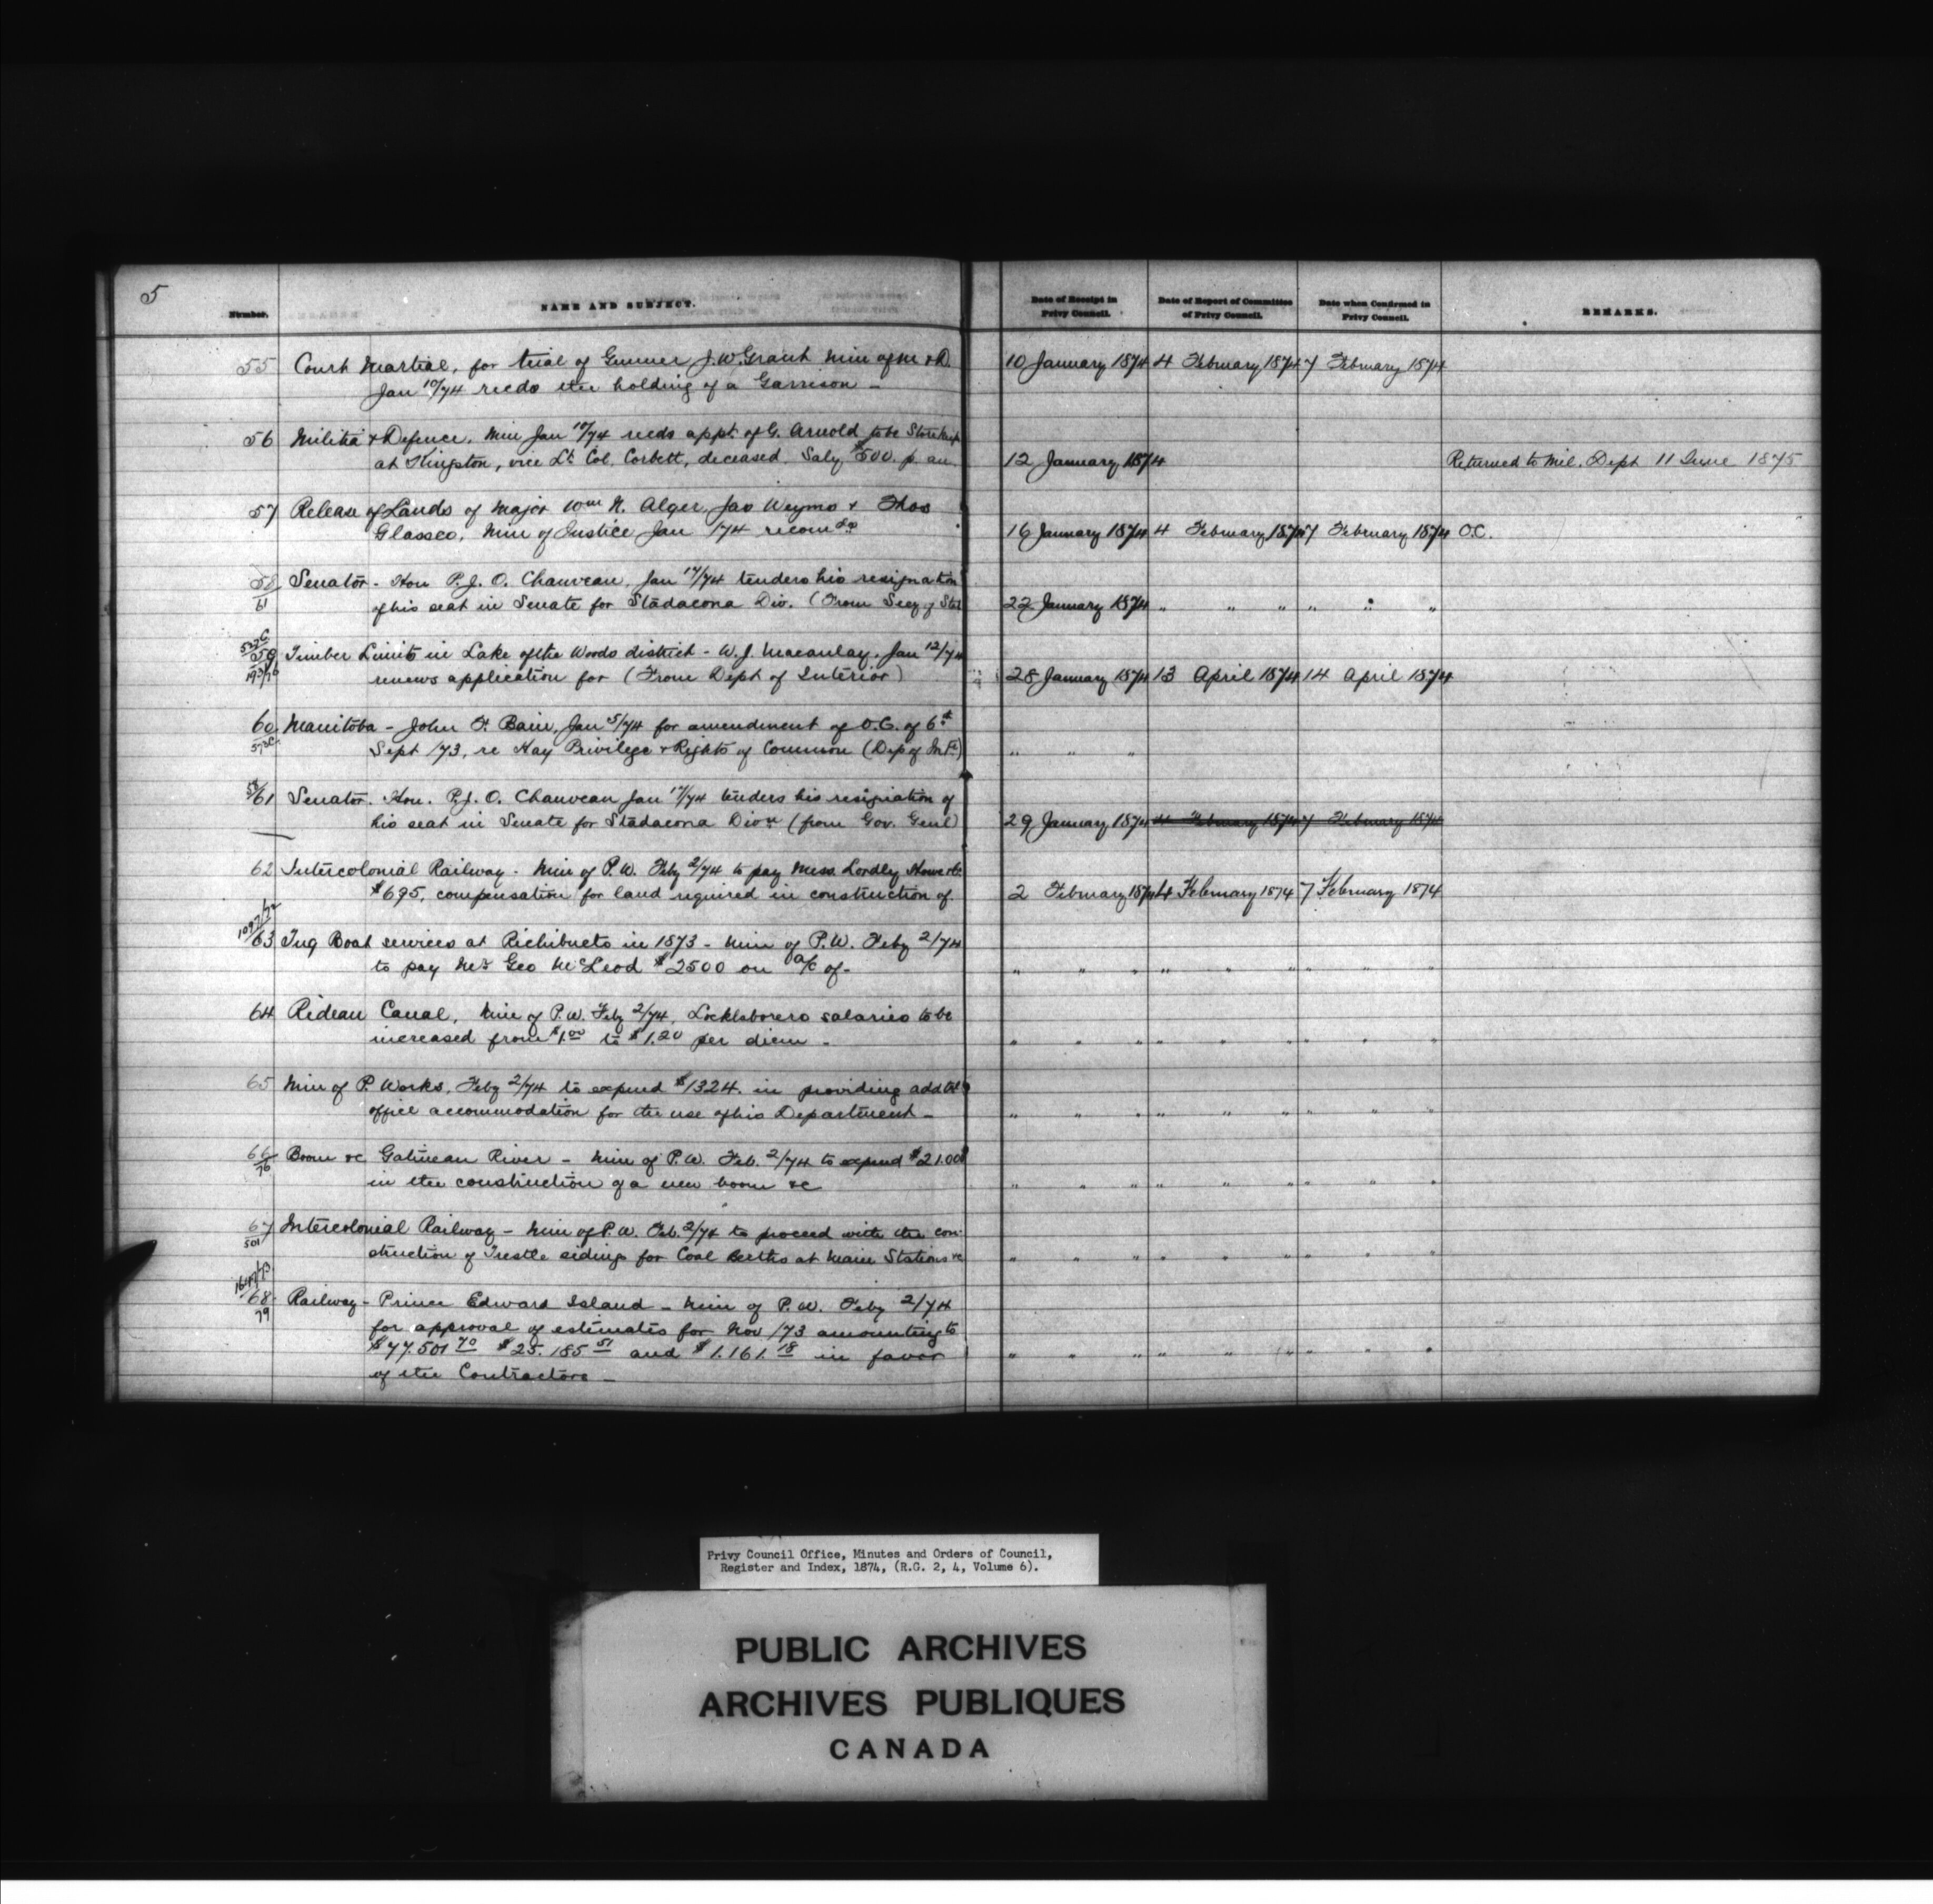 5
Number.
NAME AND SUBJECT.
Date of Receipt in Privy Council.
Date of Report of Committee of Privy Council.
Date when Confirmed in Privy Council.
REMARKS.
55 Court Martial, for trial of Gunner J.W. Grant Min of M & D.
Jan 10/74 recds the holding of a Garrison - 10 January 1874 4 February 1874 7 February 1874
56 Militia & Defence, Min Jan 10/74 recds appt. of G. Arnold to be Storekeep
at Kingston, vice Lt Col. Corbett, deceased Saly $500. p. an. 12 January 1874 Returned to Mil. Dept 11 June 1875
57 Release of Lands of Major Wm N. Alger, Jas Weymo & Thos
Glassco, Min of Justice Jan /74 recomds 16 January 1874 4 February 1874 7 February 1874 O.C.
58/61 Senator - Hon P.J.O. Chauveau, Jan 17/74 tenders his resignation
of his seat in Senate for Stadacona Div. (From Secy of Stat 22 January 1874 " " " " " "
59 Timber Limits in Lake of the Woods district - W.J. Macaulay. Jan 12/74
renews application for (From Dept of Interior) 28 January 1874 13 April 1874 14 April 1874
60 Manitoba - John F. Bain, Jan 5/74 for amendment of O.C. of 6th
Sept /73, re Hay Privilege & Rights of Common (Dep of Int) " " "
58/61 Senator. Hon. P.J.O. Chauveau Jan 17/74 tenders his resignation of
his seat in Senate for Stadacona Divn (from Gov. Genl) 29 January 1874 4 February 1874 7 February 1874
62 Intercolonial Railway - Min of P.W. Feby 2/74 to pay Mess. Lordly Howe &c
$695, compensation for land required in construction of 2 February 1874 4 February 1874 7 February 1874
63 Tug Boat services at Richibucto in 1873 - Min of P.W. Feby 2/74
to pay Mr Geo McLeod $2500 on a/c of - " " " " " " " "
64 Rideau Canal, Min of P.W. Feby 2/74, Locklaborers salaries to be
increased from $1.00 to $1.20 per diem - " " " " " " " " "
65 Min of P. Works, Feby 2/74 to expend $1324. in providing addtl
office accommodation for the use of his Department - " " " " " " " "
66/76 Boom &c Gatineau River - Min of P.W. Feb. 2/74 to expend $21.00
in the construction of a new boom &c " " " " " " " "
67/501 Intercolonial Railway - Min of P.W. Feb. 2/74 to proceed with the con-
struction of Trestle sidings for Coal Berths at Main Stations &c " " " " " " " " "
68/79 Railway - Prince Edward Island - Min of P.W. Feby 2/74
for approval of estimates for Nov /73 amounting to
$77.501 70 $25.185 51 and $1.161.18 in favor " " " " " " " "
of the Contractors -
Privy Council Office, Minutes and Orders of Council,
Register and Index, 1874, (R.G. 2, 4, Volume 6).
PUBLIC ARCHIVES
ARCHIVES PUBLIQUES
CANADA